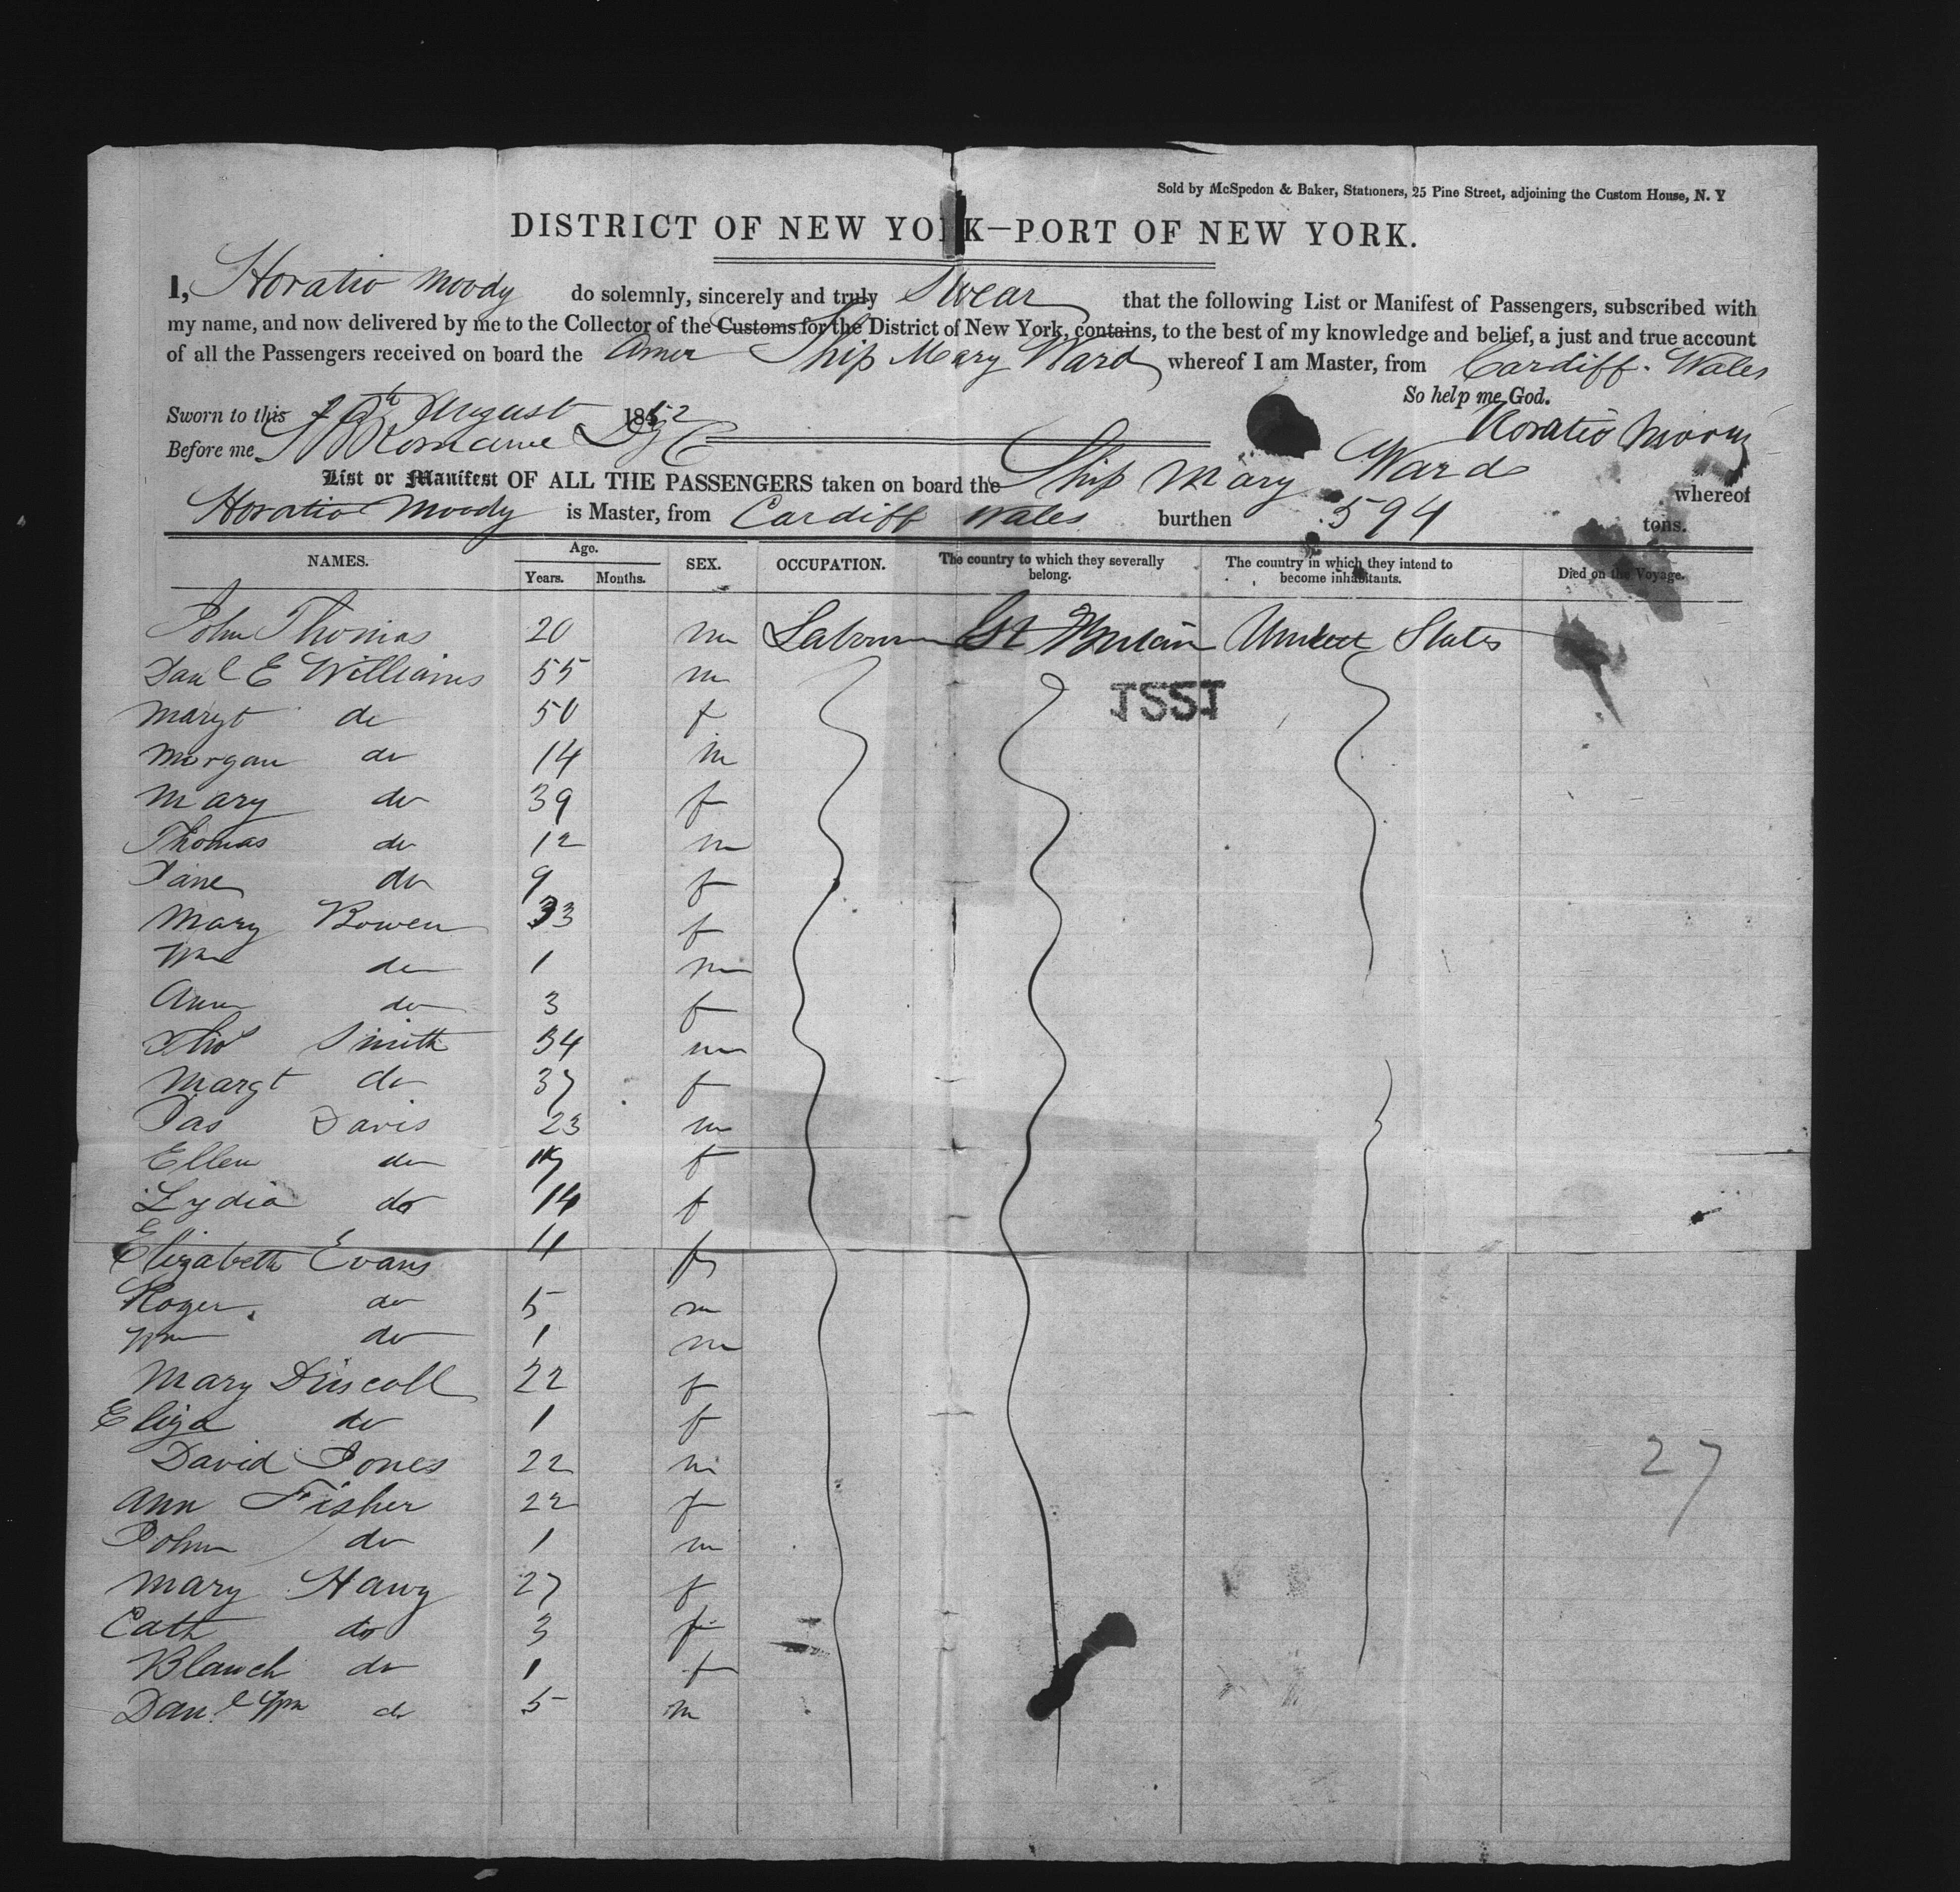 Sold by McSpedon & Baker, Stationers, 25 Pine Street, adjoining the Custom House, N. Y
DISTRICT OF NEW YORK—PORT OF NEW YORK.
I, Horatio Moody do solemnly, sincerely and truly Swear that the following List or Manifest of Passengers, subscribed with
my name, and now delivered by me to the Collector of the Customs for the District of New York, contains, to the best of my knowledge and belief, a just and true account
of all the Passengers received on board the Amer Ship Mary Ward whereof I am Master, from Cardiff. Wales
So help me God.
Sworn to this August 1852 Horatio Moody
Before me
List or Manifest OF ALL THE PASSENGERS taken on board the Ship Mary Ward whereof
Horatio Moody is Master, from Cardiff Wales burthen 594 tons.
NAMES. Age. Years. Months. SEX. OCCUPATION. The country to which they severally belong. The country in which they intend to become inhabitants. Died on the Voyage.
John Thomas 20 m Labourer Gt Britain United States
Danl E Williams 55 m
1551
Margt do 50 f
Morgan do 14 m
Mary do 39 f
Thomas do 12 m
Jane do 9 f
Mary Bowen 33 f
Wm do 1 m
Ann do 3 f
Thos Smith 34 m
Margt do 37 f
Jas Davis 23 m
Ellen do f
Lydia do 14 f
Elizabeth Evans f
Roger do 5 m
Wm do 1 m
Mary Driscoll 22 f
Eliza do 1 f
David Jones 22 m
27
Ann Fisher 22 f
John do 1 m
Mary 27 f
Cath do 3 f
Blanch do 1 f
Danl Wm do 5 m